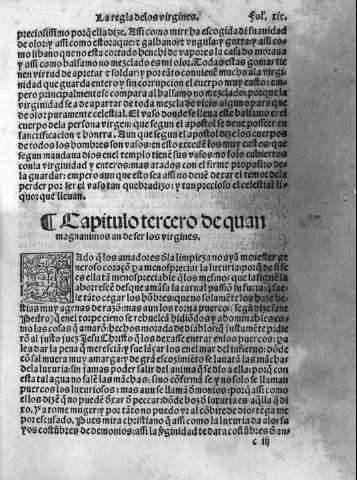 La regla delos virgines. Fol. xix.
preciosissimo porq̃ ella dize. Assi como mirrha escogida di suavidad
de olor: y assi como estoraque: y galbano: y vngula: y gutta: y assi co
mo libano que no esta cortado henchi de vapores la casa do morava
y assi como balsamo no mezclado es mi olor. Todas estas gomas tie
nen virtud de apretar y soldar: y por tãto conviene mucho ala virgini
dad que guarda entero y sin corrupcion el cuerpo muy casto: em
pero principalmente se compara al balsamo no mezclado: porque la
virginidad se a de apartar de toda mezcla de vicio alguno para que
de olor puramente celestial. El vaso donde se lleva este balsamo es el
cuerpo dela persona virgen: que segun el apostol se deve posseer en
sanctificacion y honrra. Aun que segun el apostol dize los cuerpos
de todos los hombres son vasos: en esto excedẽ los muy castos: que
segun mandava dios en el templo tienẽ sus vasos: no solo cubiertos
con la virginidad y enteros: mas atados con el firme proposito de
la guardar: empero aun que esto sea assi no dexẽ de tener temor dela
perder por ser el vaso tan quebradizo: y tan precioso el celestial li-
quor que llevan.
¶ Capitulo tercero de quan
magnanimos an de ser los virgines.
DAdo q̃ los amadores d̃la limpieza no ayã menester ge
neroso coraçõ pa menospreciar la luxuria: porq̃ de si se
es ella tã menospreciable q̃ los mesmos que la siguẽ la
aborrescẽ desque amãsa la carnal passiõ su furia q̃ sue
le tãto cegar los hõbres: que no solamẽte los haze be-
stias muy agenas de razõ: mas aun los torna puercos (segũ dize sant
Pedro) q̃ enel torpe cieno se rebuelcã hidiõdos y abominables: co
mo las cosas q̃ amarõ: hechos morada de diablos: q̃ justamẽte pidie
rõ al justo juez Jesu Christo q̃ los dexasse entrar enlos puercos: pa
les dar la pena q̃ merescian: y sue lãçar los enel mar del infierno: dõde
cõ sal muera muy amarga y de grã escozimiẽto se lavarã las mãchas
dela luxuria: sin jamas poder salir del anima q̃ se dio a ella: porq̃ con
esta tal agua no salẽ las mãchas: sino cõfirmã se y no solo se llaman
puercos los luxuriosos: mas aun se llamã demonios: porq̃ assi como
ellos dizẽ q̃ no puedẽ orar õ peccar: dõde bozõ luxuria es aq̃lla q̃ di
xo. ya tome muger: y por tãto no puedo yr al cõbite de dios tẽga me
por escusado. Pues mira christiano q̃ assi como la luxuria da alos su
yos costũbres de demonios: assi la virginidad te dara costũbres d̃ an-
c iij